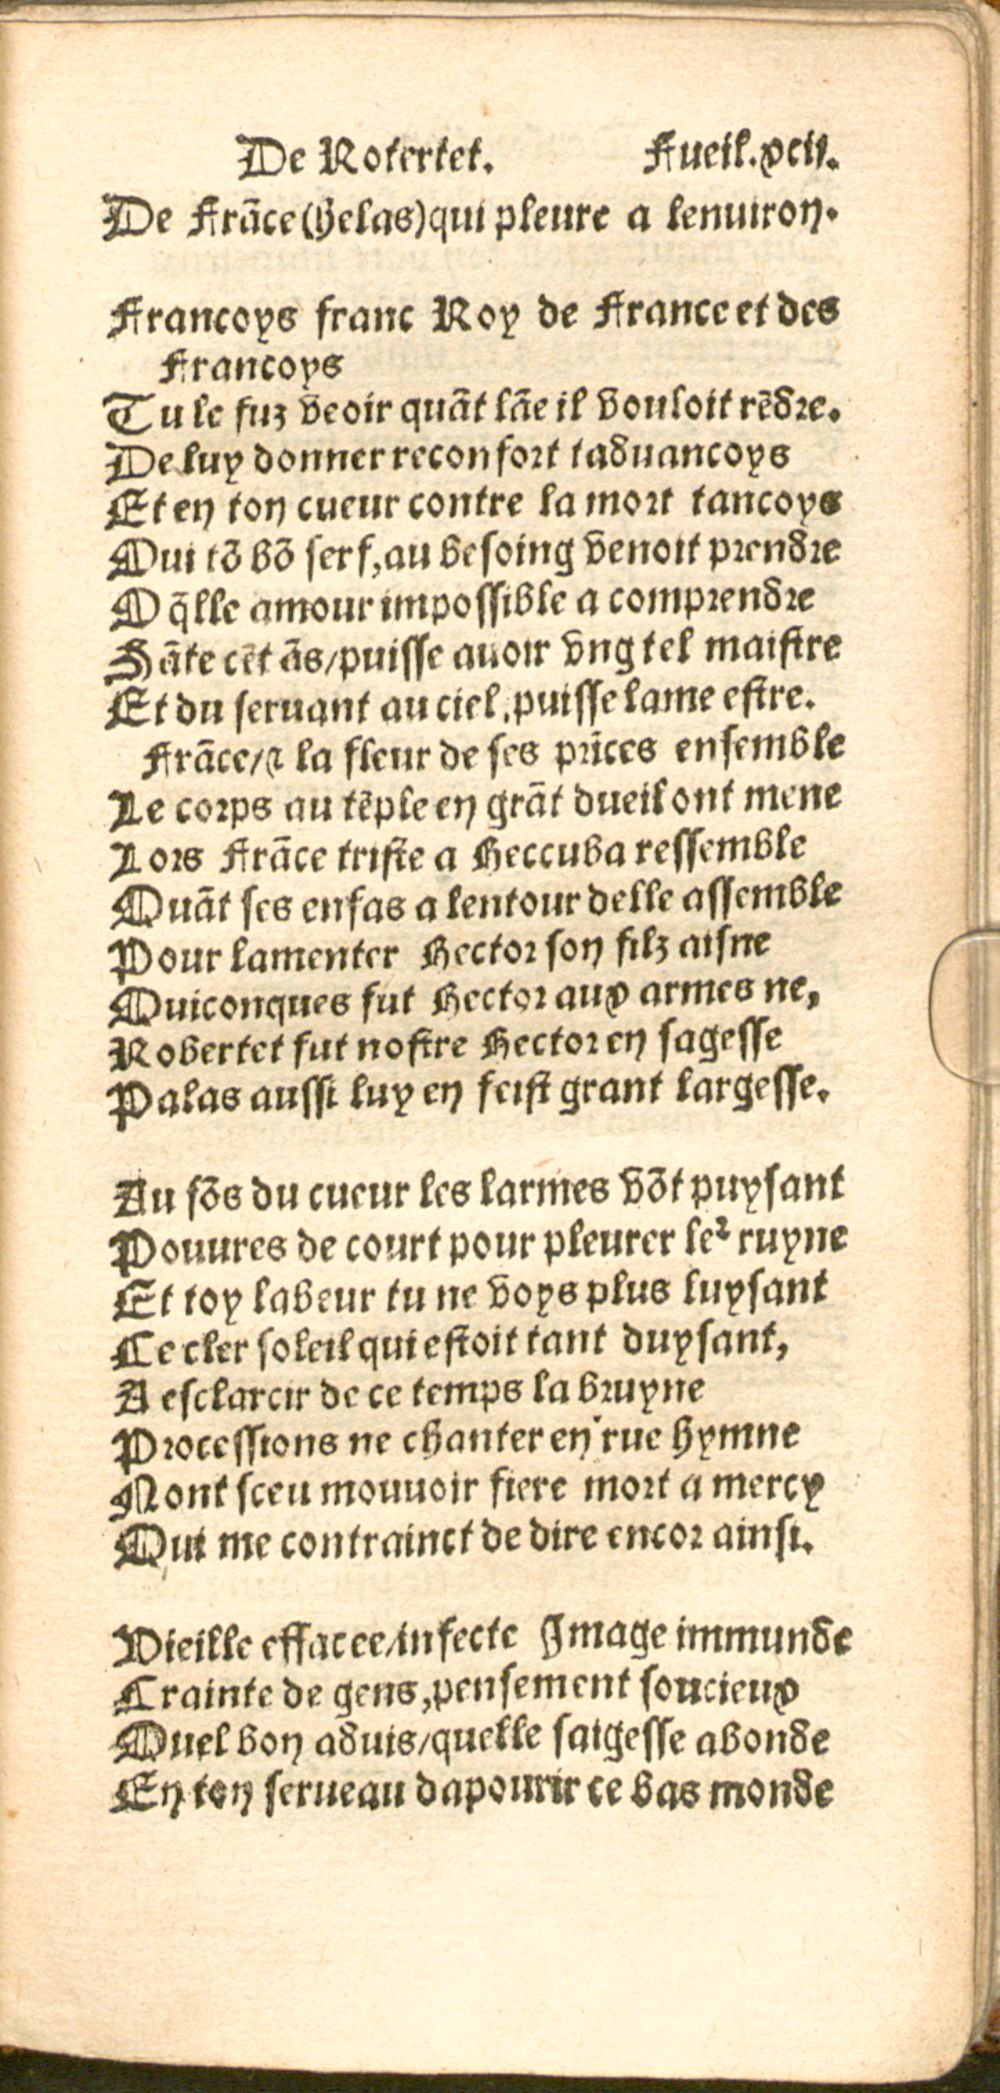 De Rotertet. Fueil.xcii.
De Frãce(helas)qui pleure a lenuiron.
Francoys franc Roy de France et des
Francoys
Tu le fuz veoir quãt lãe il vouloit rẽdre.
De luy donner reconfort taduancoys
Et en ton cueur contre la mort tancoys
Qui tõ bõ serf, au besoing venoit prendre
O q̃lle amour impossible a comprendre
Sãte cẽt ãs/puisse auoir vng tel maistre
Et du seruant au ciel, puisse lame estre.
Frãce/⁊ la fleur de ses prĩces ensemble
Le corps au tẽple en grãt dueil ont mene
Lors Frãce triste a Heccuba ressemble
Quãt ses enfas a lentour delle assemble
Pour lamenter Hector son filz aisne
Quiconques fut Hector aux armes ne,
Robertet fut nostre Hector en sagesse
Palas aussi luy en feist grant largesse.
Au fõs du cueur les larmes võt puysant
Pouures de court pour pleurer leꝛ ruyne
Et toy labeur tu ne voys plus luysant
Ce cler soleil qui estoit tant duysant,
A esclarcir de ce temps la bruyne
Processions ne chanter en rue hymne
Nont sceu mouuoir fiere mort a mercy
Qui me contrainct de dire encor ainsi.
Vieille effacee/infecte Image immunde
Crainte de gens, pensement soucieux
Quel bon aduis/quelle saigesse abonde
En ton serueau dapourir ce bas monde